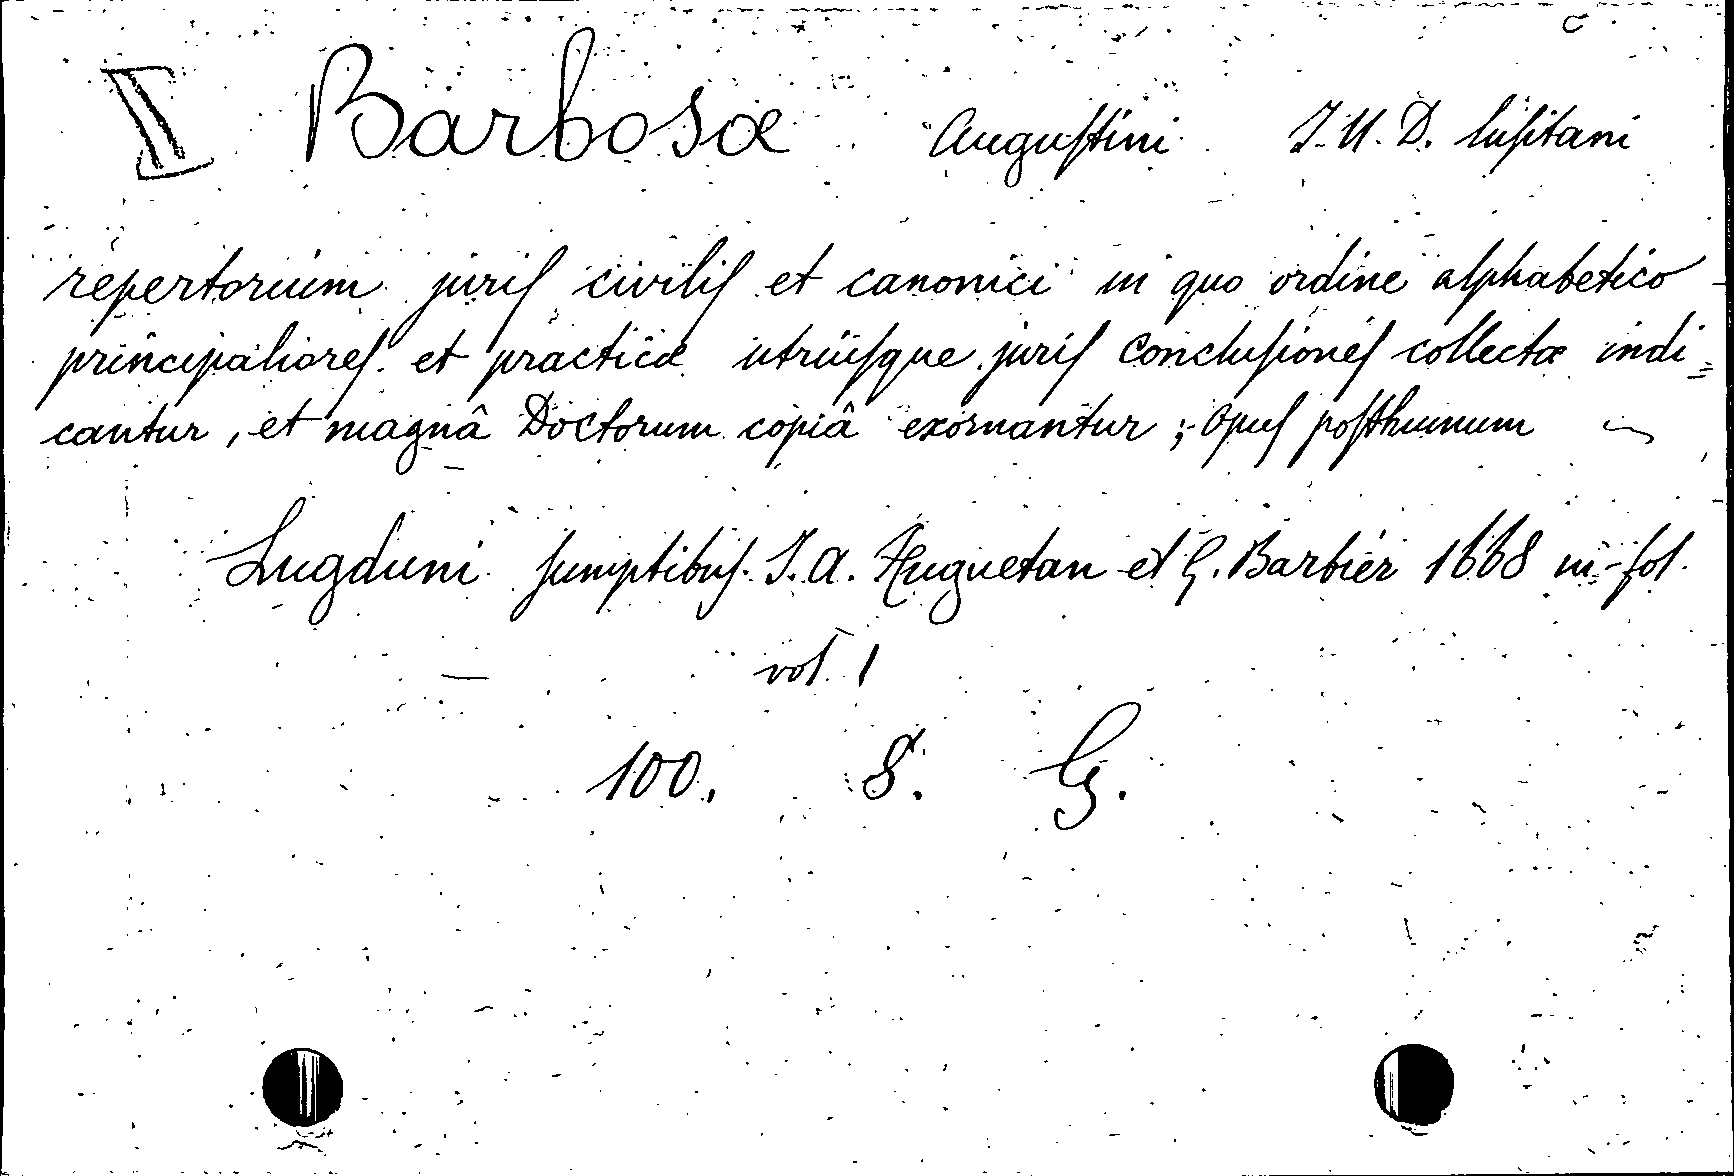 II Barbosæ Auguſtini J. U. D. luſitani
repertorium juriſ civiliſ et canonici in quo ordine alphabetico
principalioreſ et practicæ utriuſque juriſ concluſioneſ collectæ indi=
cantur, et magnâ Doctorum copiâ exornantur; opuſ poſthumum
Lugduni ſumptibuſ J. A. Huguetan et G. Barbier 1668 in-fol.
vol. 1
100. 8. G.